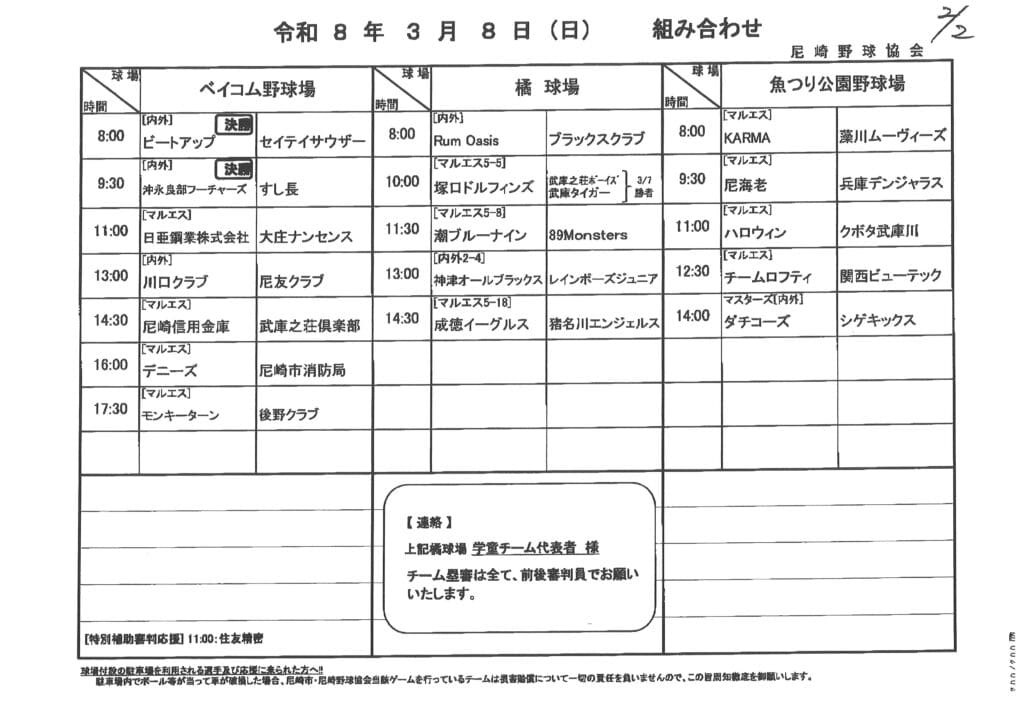 令和 8 年 3 月 8 日（日） 組み合わせ
2/2
尼崎野球協会
球場 時間 ベイコム野球場 球場 時間 橘 球場 球場 時間 魚つり公園野球場
8:00 [内外] 決勝 ビートアップ セイテイサウザー
9:30 [内外] 決勝 沖永良部フーチャーズ すし長
11:00 [マルエス] 日亜鋼業株式会社 大庄ナンセンス
13:00 [内外] 川口クラブ 尼友クラブ
14:30 [マルエス] 尼崎信用金庫 武庫之荘倶楽部
16:00 [マルエス] デニーズ 尼崎市消防局
17:30 [マルエス] モンキーターン 後野クラブ
8:00 [内外] Rum Oasis ブラックスクラブ
10:00 [マルエス5-5] 塚口ドルフィンズ 武庫之荘ボーイズ 武庫タイガー 3/7 勝者
11:30 [マルエス5-8] 潮ブルーナイン 89Monsters
13:00 [内外2-4] 神津オールブラックス レインボーズジュニア
14:30 [マルエス5-18] 成徳イーグルス 猪名川エンジェルス
8:00 [マルエス] KARMA 藻川ムーヴィーズ
9:30 [マルエス] 尼海老 兵庫デンジャラス
11:00 [マルエス] ハロウィン クボタ武庫川
12:30 [マルエス] チームロフティ 関西ビューテック
14:00 マスターズ[内外] ダチコーズ シゲキックス
【 連絡 】
上記橘球場 学童チーム代表者 様
チーム塁審は全て、前後審判員でお願い
いたします。
[特別補助審判応援] 11:00:住友精密
球場付設の駐車場を利用される選手及び応援に来られた方へ!!
駐車場内でボール等が当って車が破損した場合、尼崎市・尼崎野球協会当該ゲームを行っているチームは損害賠償について一切の責任を負いませんので、この旨周知徹底を御願いします。